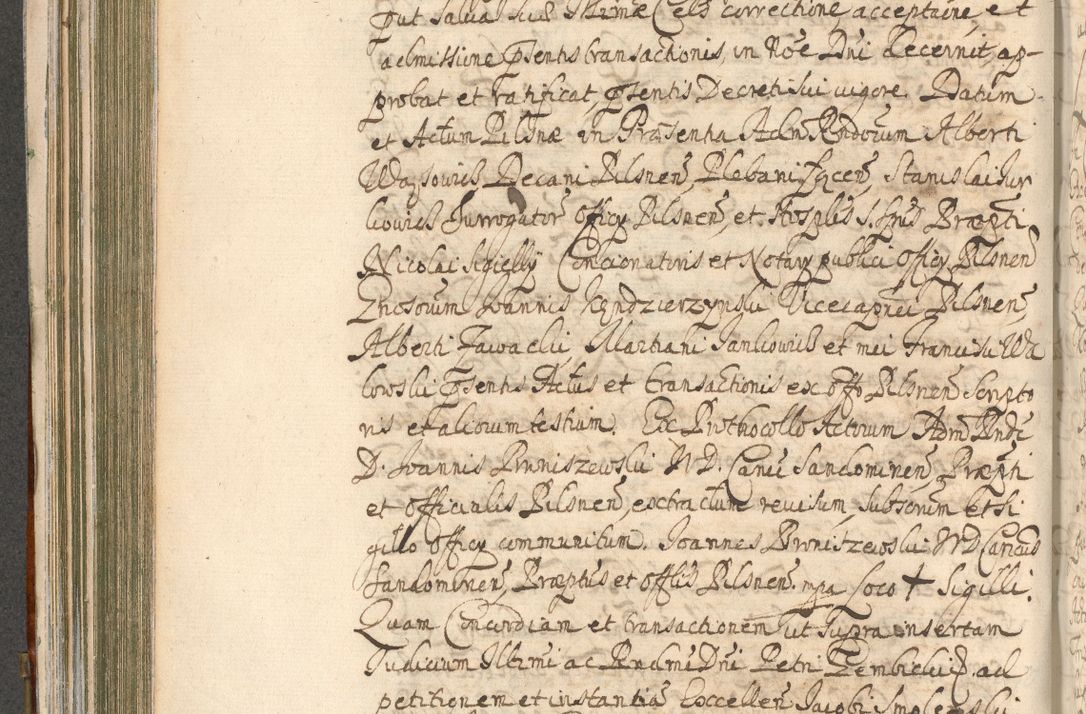 put salva sui Illrmae Cels correctione acceptaine, et
admissione psentis transactionis, in Noe Dni decernit, ap-
probat et ratificat, psentis Decreti sui vigore. Datum
et Actum Pilsnae in Praesentia Adm Rndorum Alberti
Decani Pilsnen, Plebani Stanislai Jur
Surrogator Officy Pilsnen, et Hosplis S. Spus Praepti
Nicolai Concionatoris et Notary publici Officy Pilsnen
Ioannis Kendzierzynski Pilsnen,
Alberti Zawadcki, Martiani Jankowicz et mei Francisci Wa
kowski psentis Actus et transactionis ex offo Pilsnen Scripto
ris et aliorum testium. Ex Prothocollo Actorum Adm Rndi
D. Ioannis Broniszewski U.J.D. Canci Sandomirien, Praepti
et Officialis Pilsnen, extractum revisum, subscrum et Si
gillo Officy communitum. Joannes Broniszewski UJD Cancus
Sandomirien, Praeptus et Offlis Pilsnen. mpa Loco + Sigilli.
Quam Concordiam et transactionem ut supra insertam
Iudicium Illrmi ac Rndmi Dni Petri Gembicki D. ad
petitionem et instantia Excellen Jacobi Smolenski